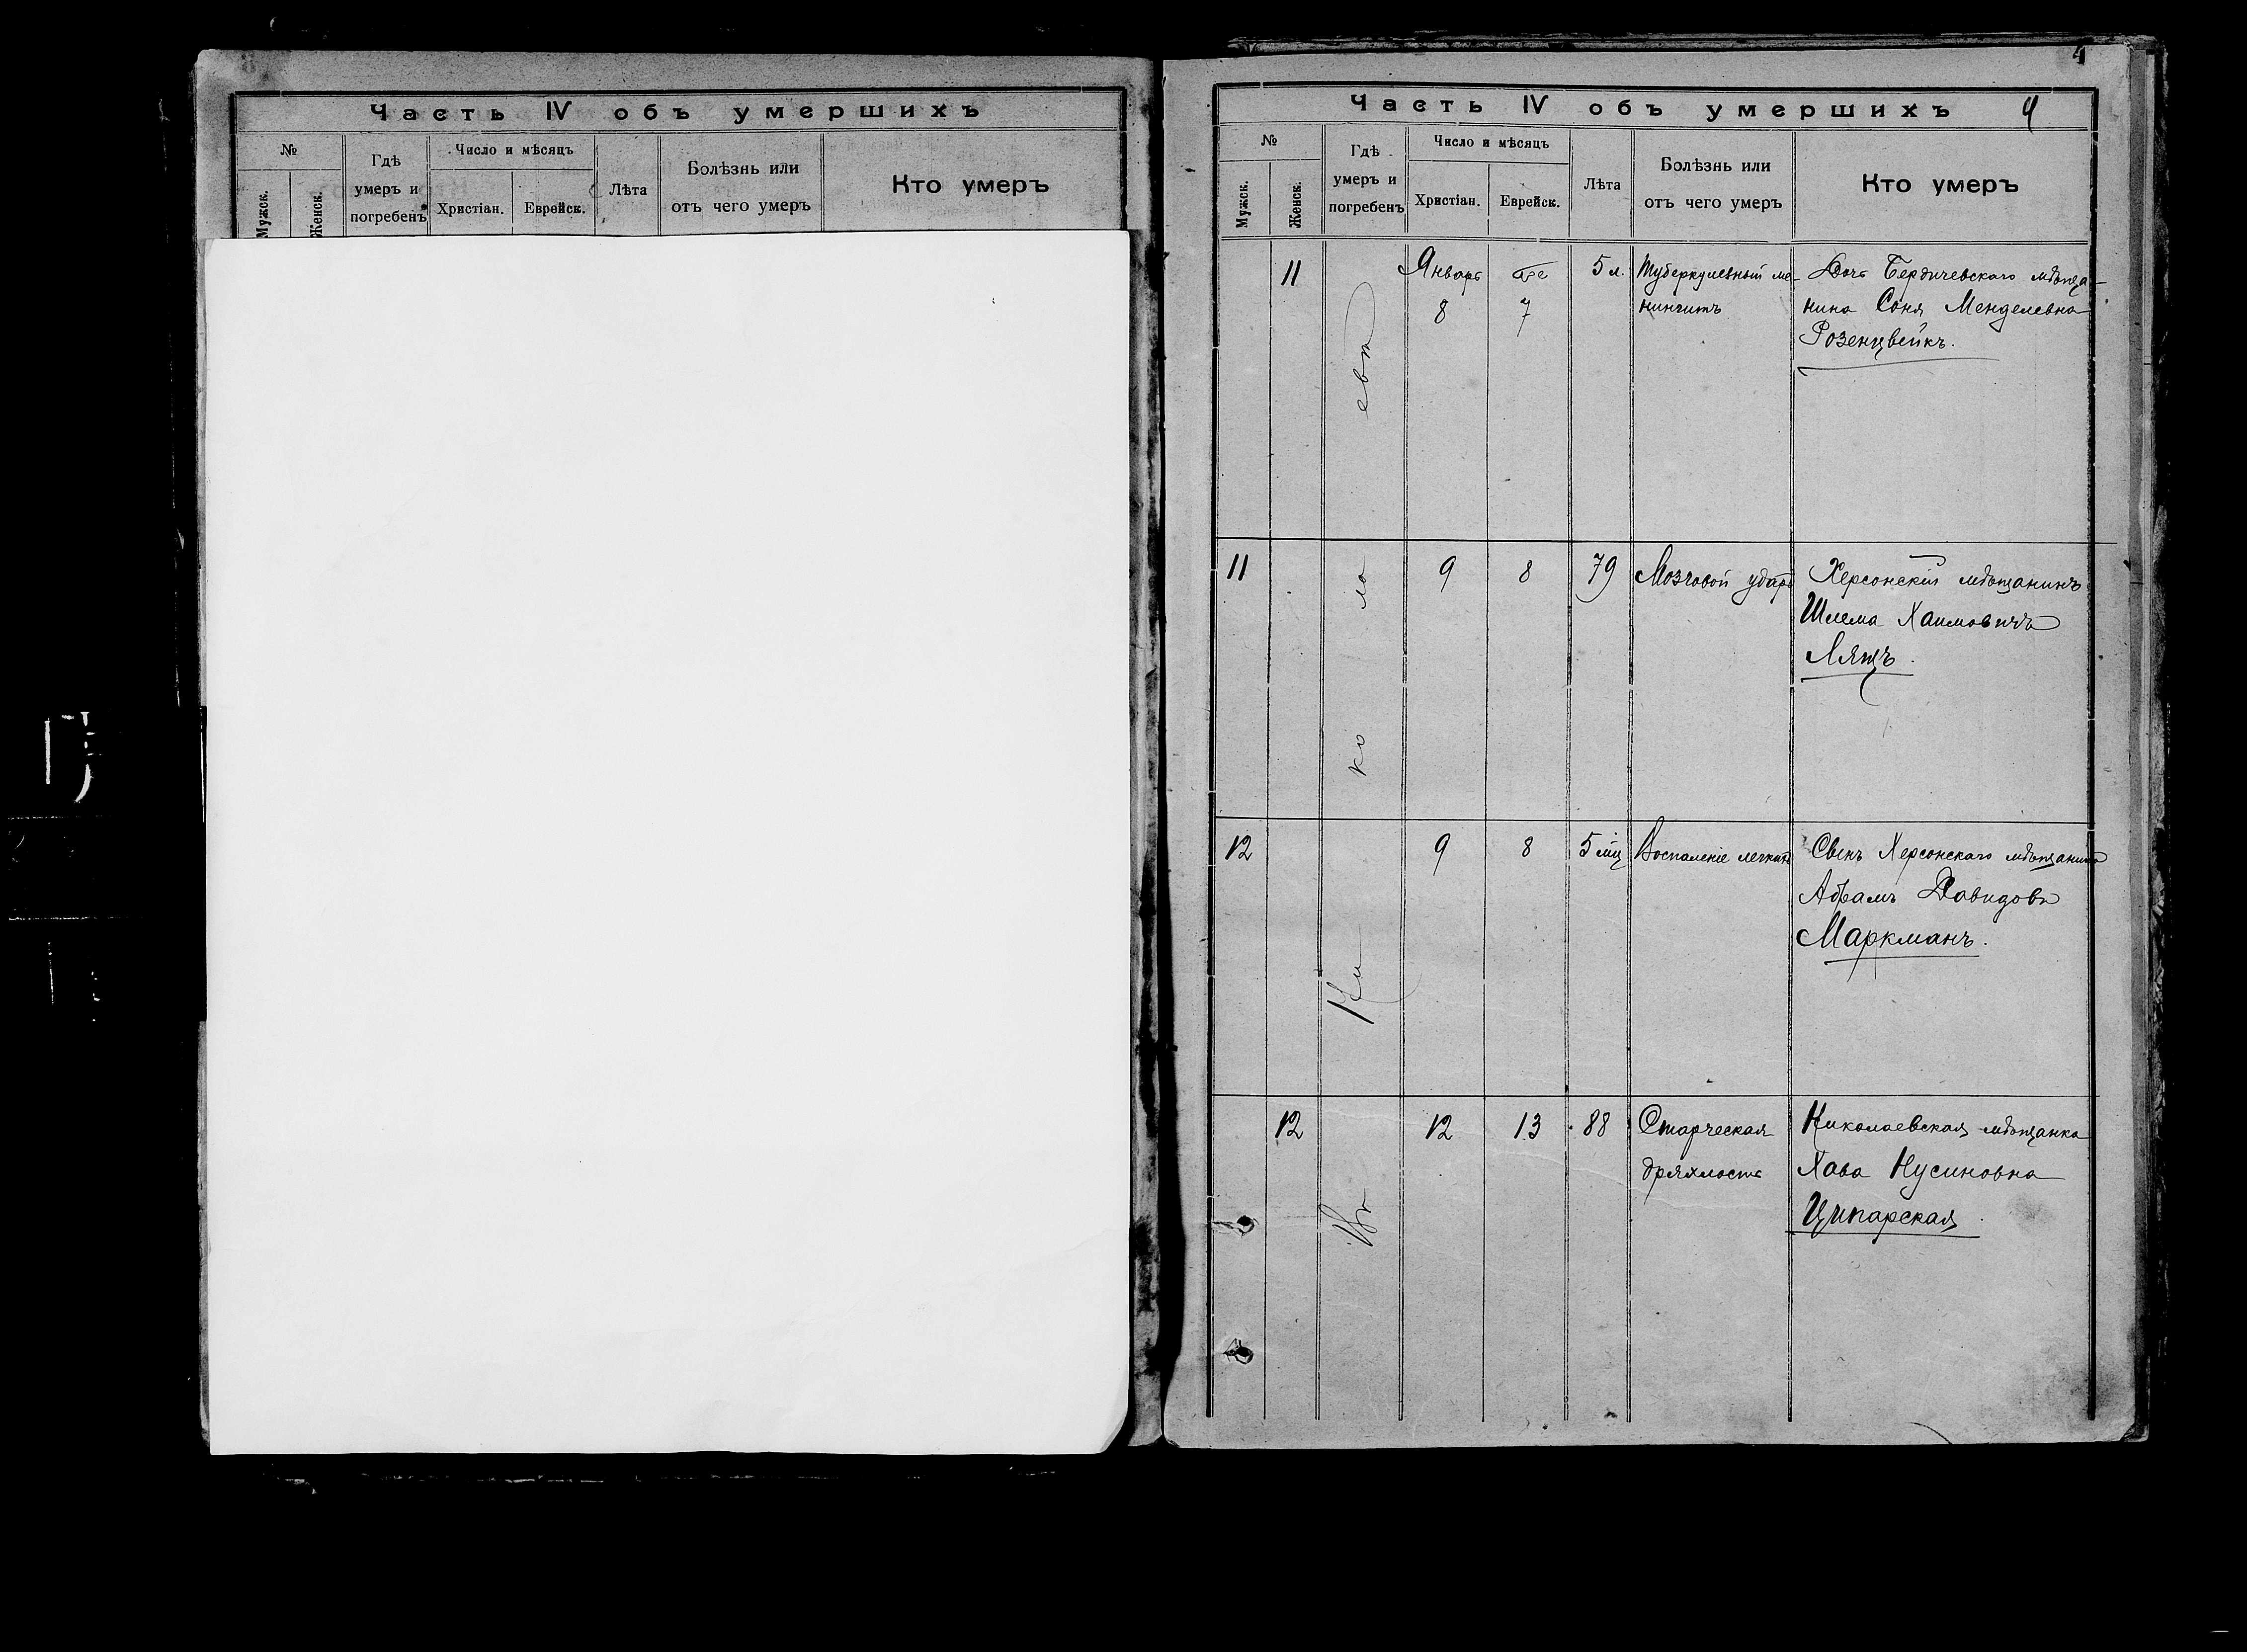 Часть IV объ умершихъ
№
Мужск.
Женск.
Гдѣ
умеръ и
погребенъ
Число и мѣсяцъ
Христіан.
Еврейск.
Лѣта
Болѣзнь или
отъ чего умеръ
Кто умеръ
4
Часть IV объ умершихъ 4
№
Мужск.
Женск.
Гдѣ
умеръ и
погребенъ
Число и мѣсяцъ
Христіан.
Еврейск.
Лѣта
Болѣзнь или
отъ чего умеръ
Кто умеръ
Въ Николаевѣ
11
Январь
8
7
5 л.
Туберкулезный ме-
нингитъ
Дочь Бердичевскаго мѣща-
нина Соня Менделевна
Розенцвейкъ.
11
9
8
79
Мозговой ударъ
Херсонскій мѣщанинъ
Шлема Хаимовичъ
Лящъ.
12
9
8
5 мц
Воспаленіе легкихъ
Сынъ Херсонскаго мѣщанина
Абрамъ Давидовъ
Маркманъ.
12
12
13
88
Старческая
дряхлость
Николаевская мѣщанка
Хава Нусиновна
Ципарская